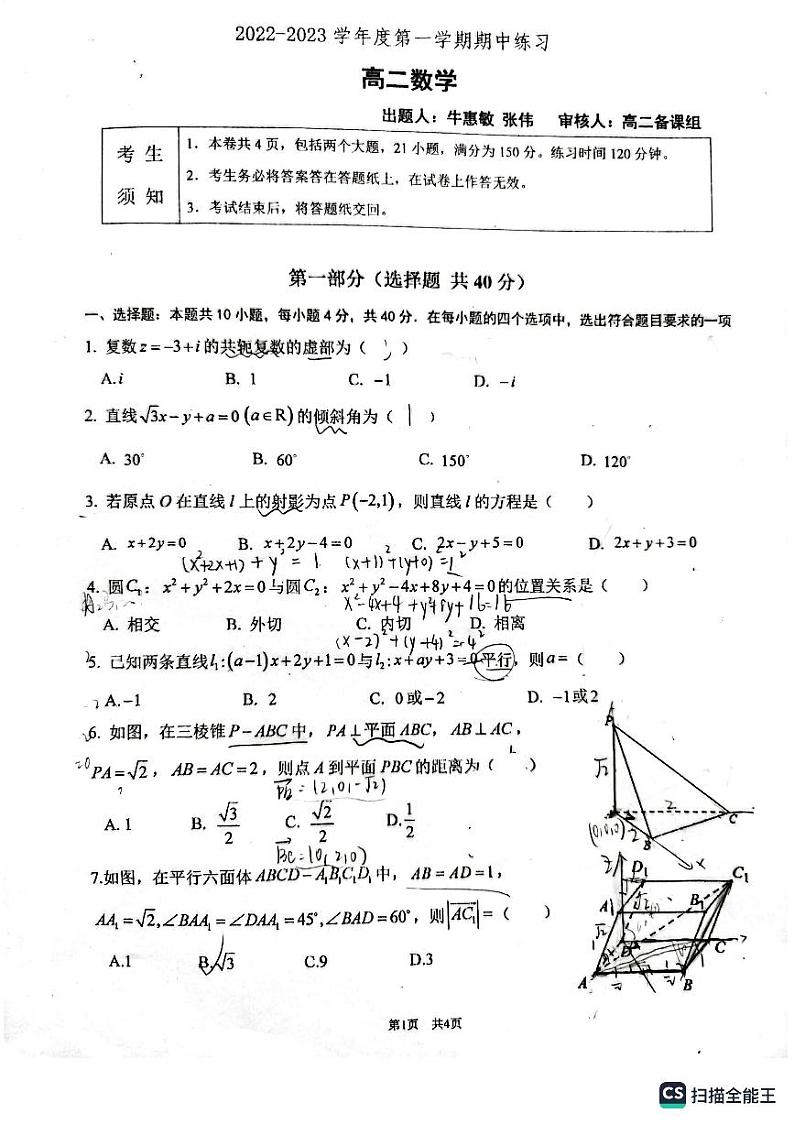 2022-2023 学年度第一学期期中练习
高二数学
出题人：牛惠敏 张伟 审核人：高二备课组
考 生 须 知
1．本卷共 4 页，包括两个大题，21 小题，满分为 150 分。练习时间 120 分钟。
2．考生务必将答案答在答题纸上，在试卷上作答无效。
3．考试结束后，将答题纸交回。
第一部分（选择题 共 40 分）
一、选择题：本题共 10 小题，每小题 4 分，共 40 分．在每小题的四个选项中，选出符合题目要求的一项
1. 复数 z = -3 + i 的共轭复数的虚部为（ ）
A. i B. 1 C. -1 D. -i
2. 直线 √3x - y + a = 0 (a∈R) 的倾斜角为（ ）
A. 30° B. 60° C. 150° D. 120°
3. 若原点 O 在直线 l 上的射影为点 P(-2,1)，则直线 l 的方程是（ ）
A. x+2y=0 B. x+2y-4=0 C. 2x-y+5=0 D. 2x+y+3=0
(x²+2x+1) + y² = 1 (x+1)²+(y+0)²=1²
4. 圆C₁：x²+y²+2x=0与圆C₂：x²+y²-4x+8y+4=0的位置关系是（ ）
x²-4x+4+y²+8y+16=16
A. 相交 B. 外切 C. 内切 D. 相离
(x-2)²+(y+4)²=4²
5. 已知两条直线l₁:(a-1)x+2y+1=0与l₂:x+ay+3=0平行，则a=（ ）
A. -1 B. 2 C. 0或-2 D. -1或2
6. 如图，在三棱锥P-ABC中，PA⊥平面ABC，AB⊥AC，
PA=√2，AB=AC=2，则点A到平面PBC的距离为（ ）
PB=(2,0,-√2)
A. 1 B. √3/2 C. √2/2 D. 1/2
7.如图，在平行六面体ABCD-A₁B₁C₁D₁中，AB=AD=1，
AA₁=√2,∠BAA₁=∠DAA₁=45°,∠BAD=60°，则|AC₁|=（ ）
A.1 B.√3 C.9 D.3
P
√2
2
C
(0,0,0)
2
B
x
D₁
C₁
A₁
B₁
√2
D
C
A
B
第1页 共4页
CS 扫描全能王